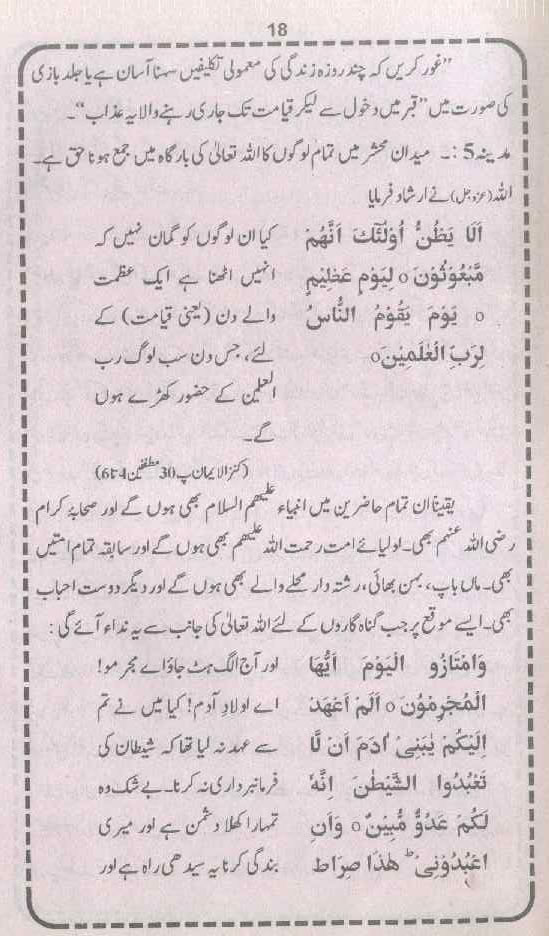 18
”غور کریں کہ چند روزہ زندگی کی معمولی تکلیفیں سہنا آسان ہے یا جلد بازی
کی صورت میں ”قبر میں دخول سے لیکر قیامت تک جاری رہنے والا یہ عذاب“۔
مدینہ 5 :۔ میدان محشر میں تمام لوگوں کا اللہ تعالیٰ کی بارگاہ میں جمع ہونا حق ہے۔
اللہ (عزوجل) نے ارشاد فرمایا
اَلَا یَظُنُّ اُولٰٓئِكَ اَنَّهُمْ
مَّبْعُوْثُوْنَ ○ لِیَوْمٍ عَظِیْمٍ
○ یَوْمَ یَقُوْمُ النَّاسُ
لِرَبِّ الْعٰلَمِیْنَ ○
کیا ان لوگوں کو گمان نہیں کہ
انہیں اٹھنا ہے ایک عظمت
والے دن (یعنی قیامت) کے
لئے، جس دن سب لوگ رب
العلمین کے حضور کھڑے ہوں
گے۔
(کنزالایمان پ 30 مطففین 4 تا 6)
یقیناً ان تمام حاضرین میں انبیاء علیھم السلام بھی ہوں گے اور صحابہ کرام
رضی اللہ عنہم بھی۔ اولیائے امت رحمت اللہ علیھم بھی ہوں گے اور سابقہ تمام امتیں
بھی۔ ماں باپ، بہن بھائی، رشتہ دار محلے والے بھی ہوں گے اور دیگر دوست احباب
بھی۔ ایسے موقع پر جب گناہ گاروں کے لئے اللہ تعالیٰ کی جانب سے یہ نداء آئے گی :
وَامْتَازُو الْیَوْمَ اَیُّهَا
الْمُجْرِمُوْنَ ○ اَلَمْ اَعْهَدْ
اِلَیْكُمْ یٰبَنِیْۤ اٰدَمَ اَنْ لَّا
تَعْبُدُوا الشَّیْطٰنَ اِنَّهٗ
لَكُمْ عَدُوٌّ مُّبِیْنٌ ○ وَّاَنِ
اعْبُدُوْنِیْ ؕ هٰذَا صِرَاطٌ
اور آج الگ ہٹ جاؤ اے مجرمو!
اے اولادِ آدم! کیا میں نے تم
سے عہد نہ لیا تھا کہ شیطان کی
فرمانبرداری نہ کرنا۔ بے شک وہ
تمہارا کھلا دشمن ہے اور میری
بندگی کرنا یہ سیدھی راہ ہے اور